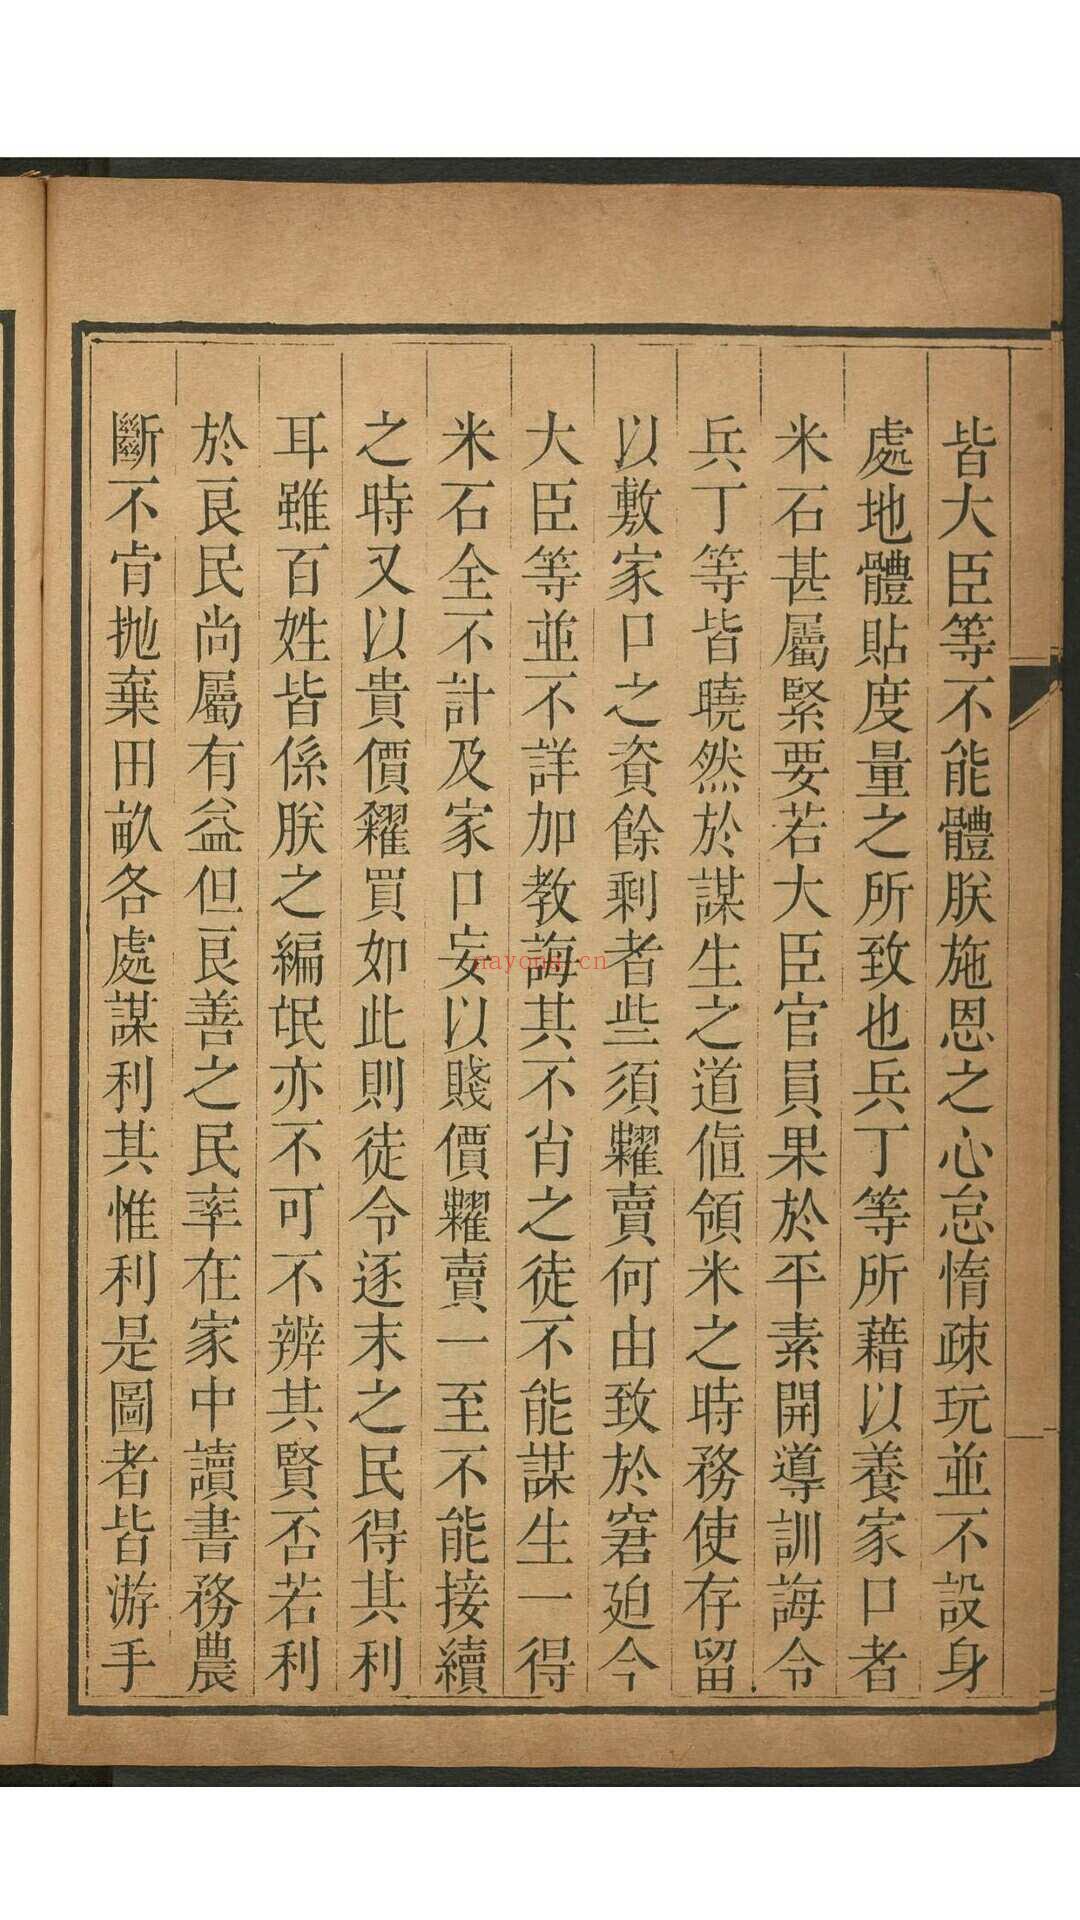 皆大臣等不能體朕施恩之心怠惰疎玩並不設身
處地體貼度量之所致也兵丁等所藉以養家口者
米石甚屬緊要若大臣官員果於平素開導訓誨令
兵丁等皆曉然於謀生之道値領米之時務使存留
以敷家口之資餘剩者些須糶賣何由致於窘廹今
大臣等並不詳加教誨其不肖之徒不能謀生一得
米石全不計及家口妄以賤價糶賣一至不能接續
之時又以貴價糴買如此則徒令逐末之民得其利
耳雖百姓皆係朕之編氓亦不可不辨其賢否若利
於良民尚屬有益但良善之民率在家中讀書務農
斷不肯抛棄田畝各處謀利其惟利是圖者皆游手
nayona.cn